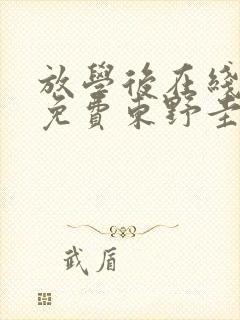 放學後在綫
免費東野圭
武盾